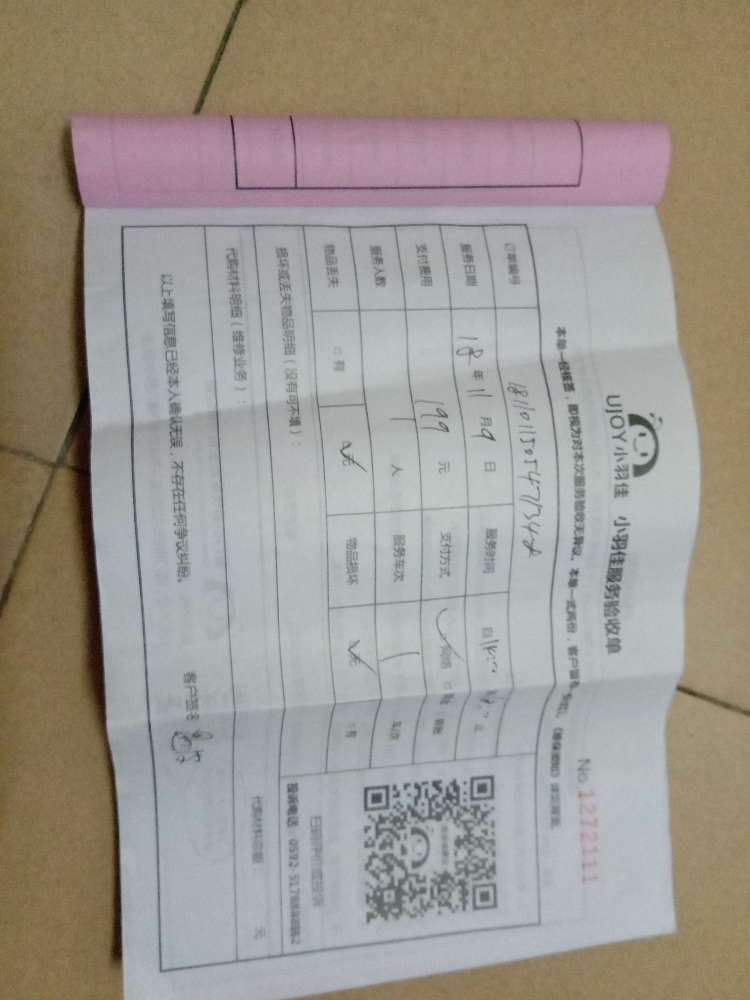 UJOY小羽佳 小羽佳服务验收单
No 1272111
本单一经核签，即视为对本次服务验收无异议。本单一式两份，客户留存
订单编号
服务日期 18年11月9日 服务时间 自
支付费用 199元 支付方式 网络
服务人数 1人 服务车次 1 车次
物品丢失 □有 无 物品损坏 无 □有
损坏或丢失物品明细（没有可不填）：
扫码评价或投诉
投诉电话 0592
代购材料明细（维修业务）：
代购材料总额： 元
以上填写信息已经本人确认无误，不存在任何争议纠纷。
客户签名：